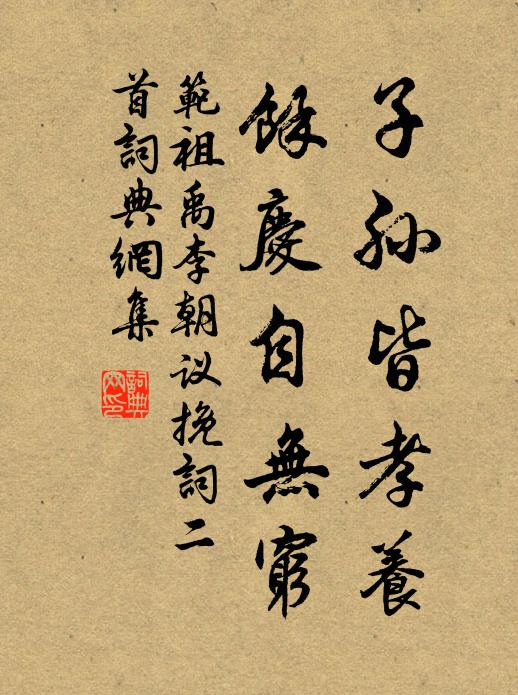 子孙皆孝養
餘慶自無窮
範祖禹李朝议挽詞二
首詞典網集
詞典
网印